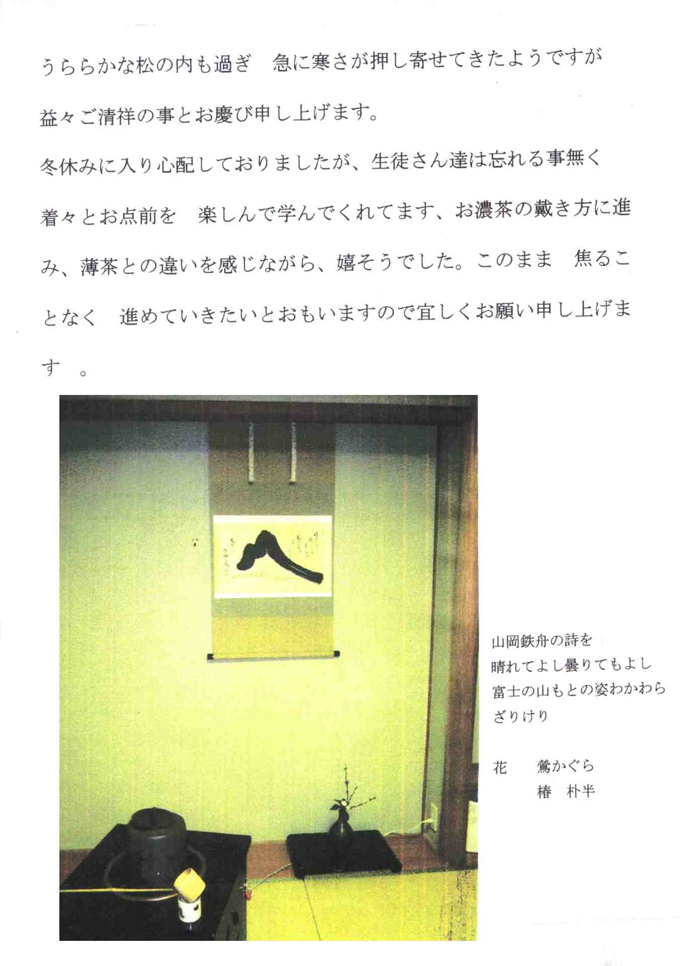 うららかな松の内も過ぎ　急に寒さが押し寄せてきたようですが
益々ご清祥の事とお慶び申し上げます。
冬休みに入り心配しておりましたが、生徒さん達は忘れる事無く
着々とお点前を　楽しんで学んでくれてます、お濃茶の戴き方に進
み、薄茶との違いを感じながら、嬉そうでした。このまま　焦るこ
となく　進めていきたいとおもいますので宜しくお願い申し上げま
す　。
山岡鉄舟の詩を
晴れてよし曇りてもよし
富士の山もとの姿わかわら
ざりけり
花　　鶯かぐら
椿　朴半